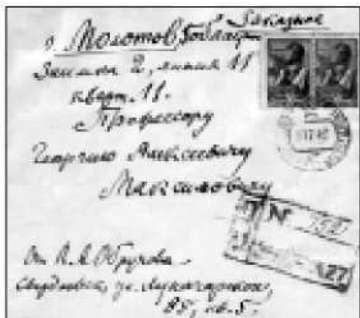 Заказное
г. Молотов,
Заимка 2, линия 11
кварт. 11.
Профессору
Георгию Алексеевичу
Максимовичу
№
От В. А. Обручева
Свердловск, ул. Луначарского,
85, кв. 5.